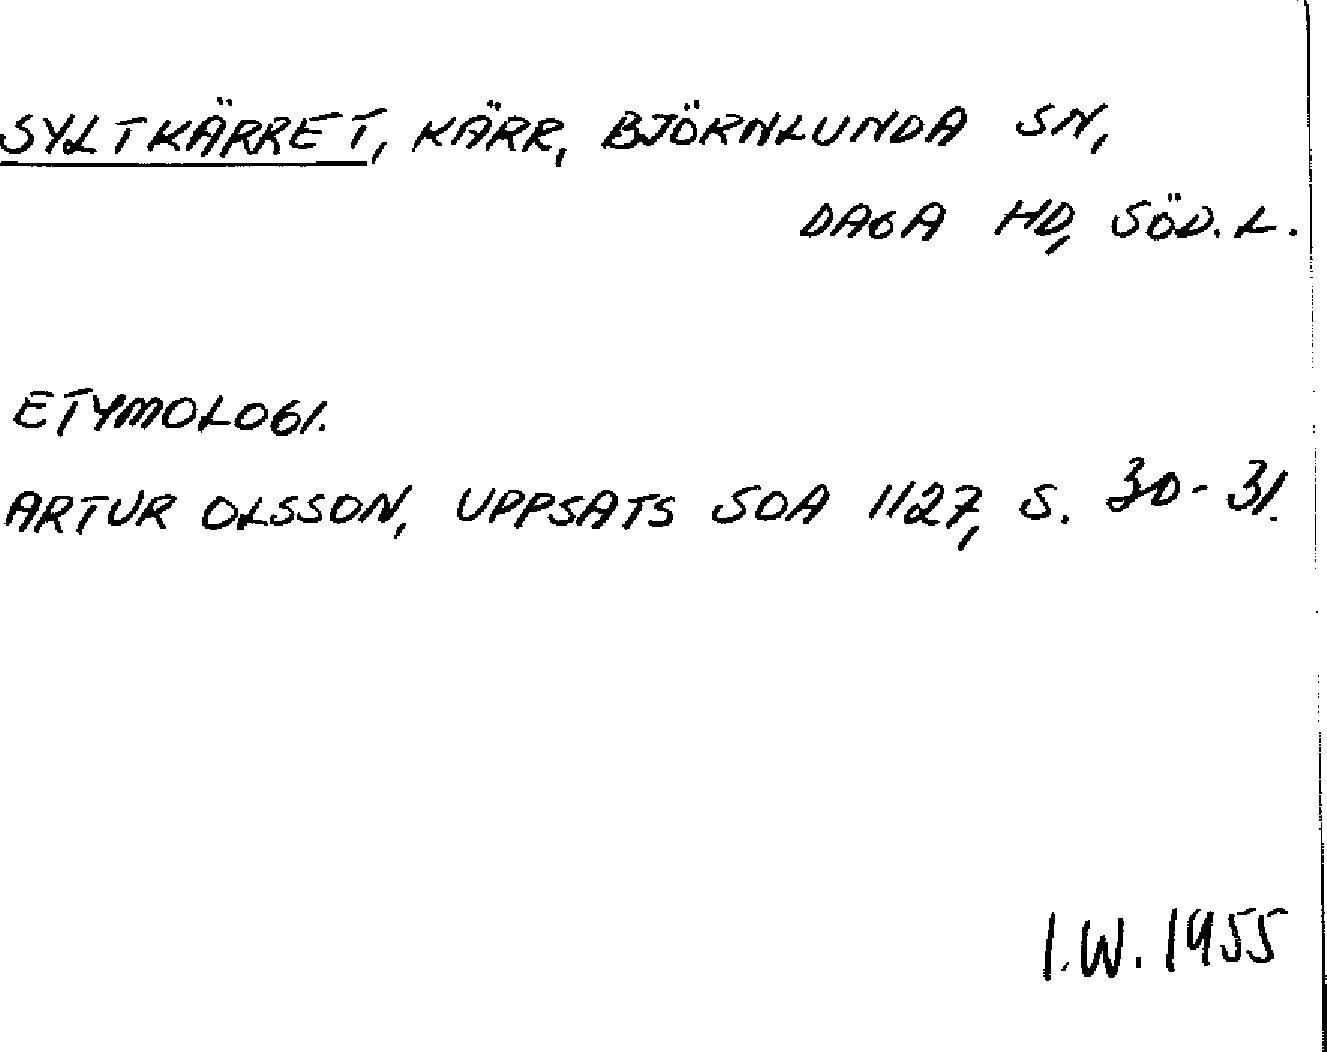 SYLTKÄRRET, KÄRR, BJÖRNLUNDA SN,
DAGA HD, SÖD.L.
ETYMOLOGI.
ARTUR OLSSON, UPPSATS SOA 1127, S. 30-31.
I.W. 1955